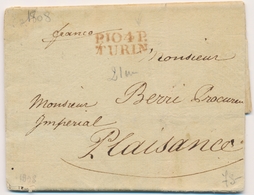 1808
franco
P.104.P.
TURIN
Monsieur
Monsieur Berri Procureur
Imperial
Plaisance